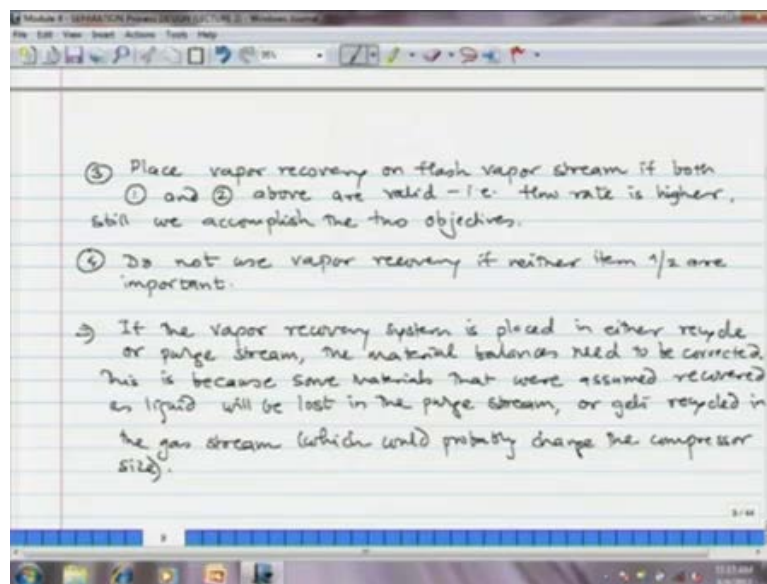 Module 8 - SEPARATION Process DESIGN (LECTURE 2) - Windows Journal
File Edit View Insert Actions Tools Help
③ Place vapor recovery on flash vapor stream if both
① and ② above are valid - i.e. flow rate is higher,
still we accomplish the two objectives.
④ Do not use vapor recovery if neither item 1/2 are
important.
⇒ If the vapor recovery system is placed in either recycle
or purge stream, the material balances need to be corrected.
This is because some materials that were assumed recovered
as liquid will be lost in the purge stream, or gets recycled in
the gas stream (which would probably change the compressor
size).
9